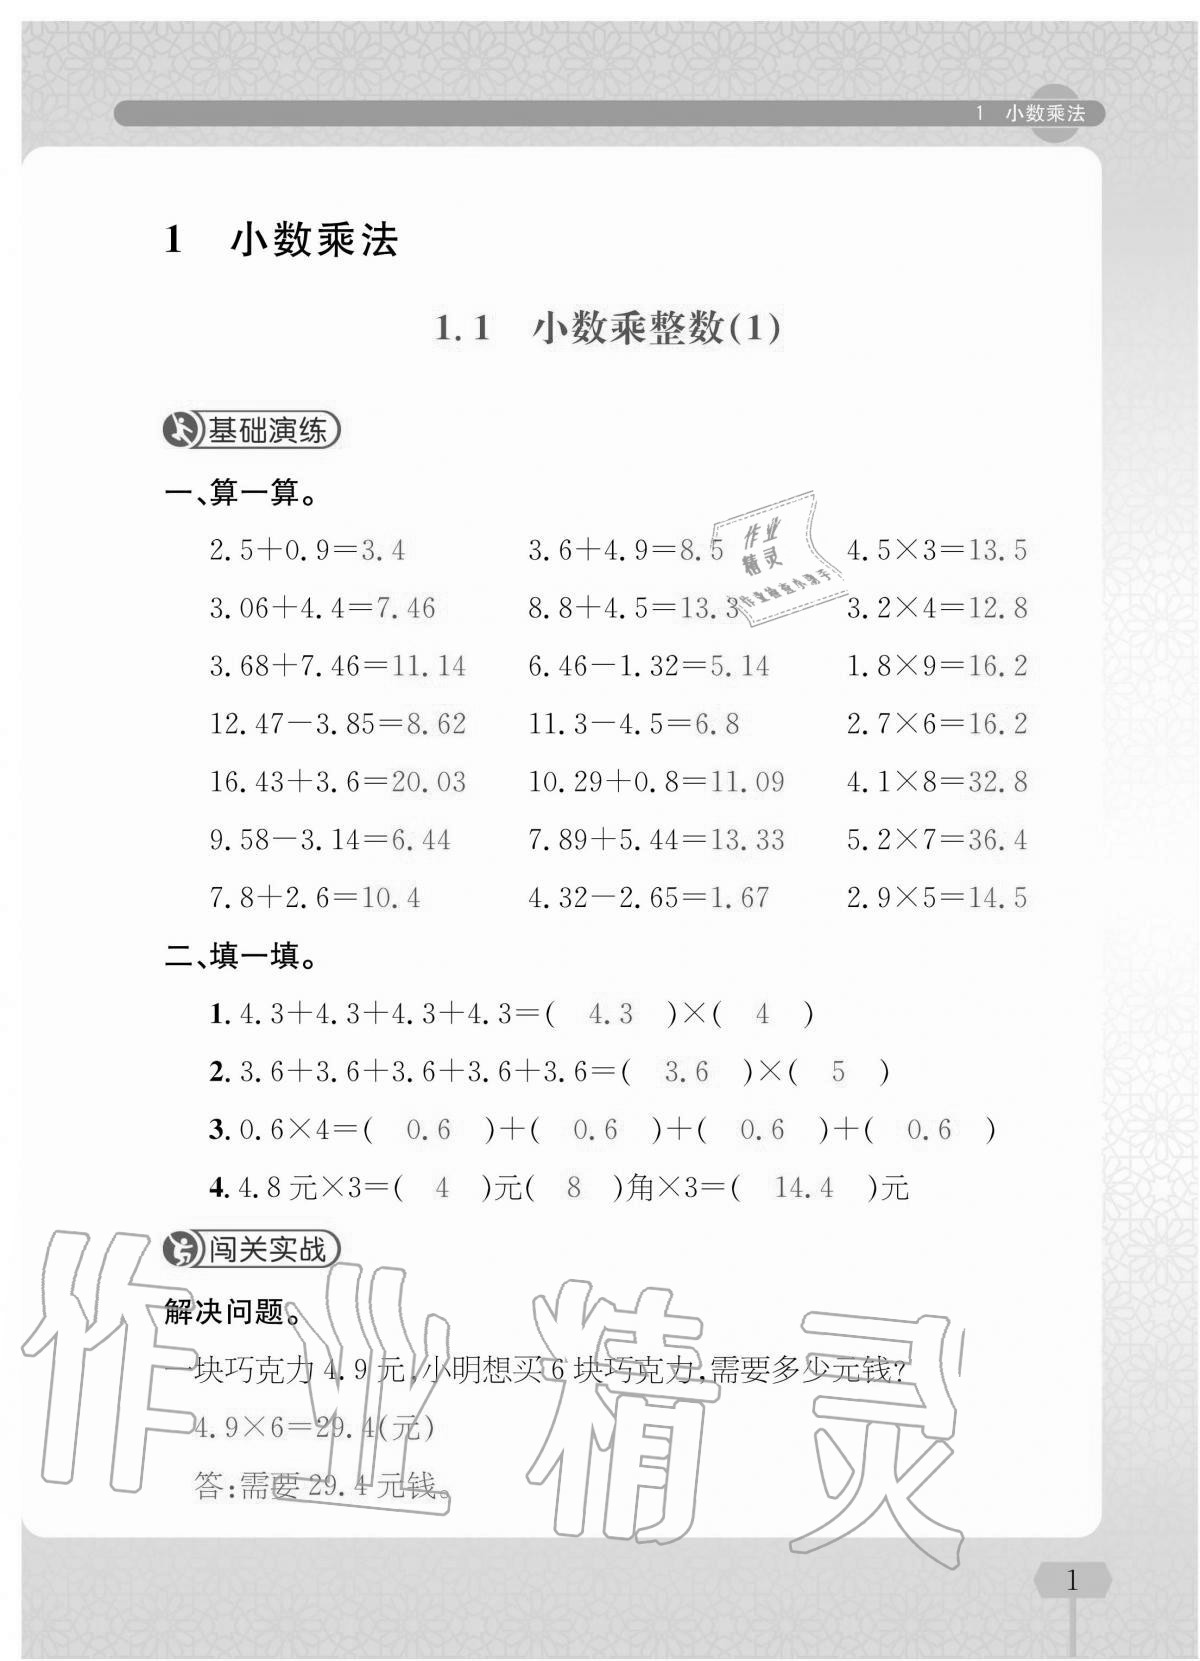 1 小数乘法
1 小数乘法
1.1 小数乘整数(1)
基础演练
一、算一算。
2.5+0.9=3.4 3.6+4.9=8.5 4.5×3=13.5
3.06+4.4=7.46 8.8+4.5=13.3 3.2×4=12.8
3.68+7.46=11.14 6.46-1.32=5.14 1.8×9=16.2
12.47-3.85=8.62 11.3-4.5=6.8 2.7×6=16.2
16.43+3.6=20.03 10.29+0.8=11.09 4.1×8=32.8
9.58-3.14=6.44 7.89+5.44=13.33 5.2×7=36.4
7.8+2.6=10.4 4.32-2.65=1.67 2.9×5=14.5
作业
精灵
作业检查小助手
二、填一填。
1.4.3+4.3+4.3+4.3=( 4.3 )×( 4 )
2.3.6+3.6+3.6+3.6+3.6=( 3.6 )×( 5 )
3.0.6×4=( 0.6 )+( 0.6 )+( 0.6 )+( 0.6 )
4.4.8元×3=( 4 )元( 8 )角×3=( 14.4 )元
闯关实战
解决问题。
一块巧克力4.9元,小明想买6块巧克力,需要多少元钱?
4.9×6=29.4(元)
答:需要29.4元钱。
作业精灵
1